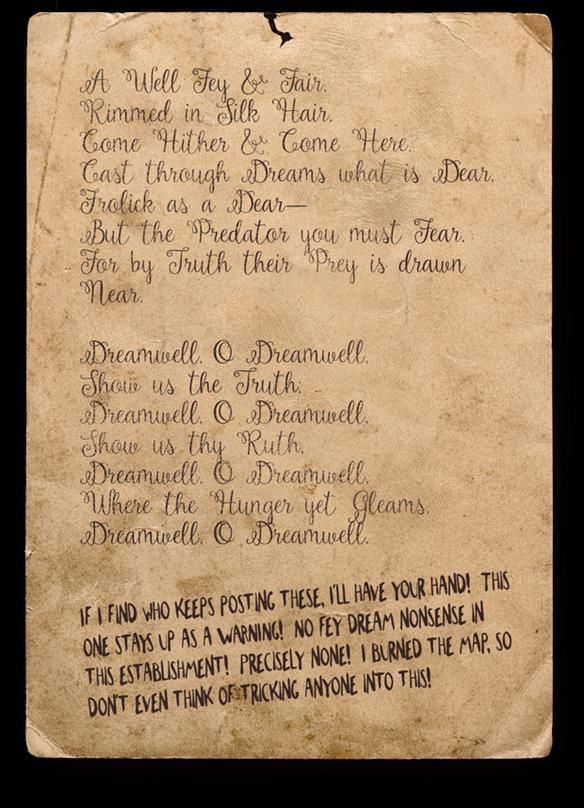 A Well Fey & Fair.
Rimmed in Silk Hair.
Come Hither & Come Here.
Cast through Dreams what is Dear.
Frolick as a Dear—
But the Predator you must Fear.
For by Truth their Prey is drawn
Near.
Dreamwell, O Dreamwell.
Show us the Truth;
Dreamwell, O Dreamwell.
Show us thy Ruth.
Dreamwell, O Dreamwell.
Where the Hunger yet Gleams.
Dreamwell, O Dreamwell.
IF I FIND WHO KEEPS POSTING THESE, I'LL HAVE YOUR HAND! THIS
ONE STAYS UP AS A WARNING! NO FEY DREAM NONSENSE IN
THIS ESTABLISHMENT! PRECISELY NONE! I BURNED THE MAP, SO
DON'T EVEN THINK OF TRICKING ANYONE INTO THIS!